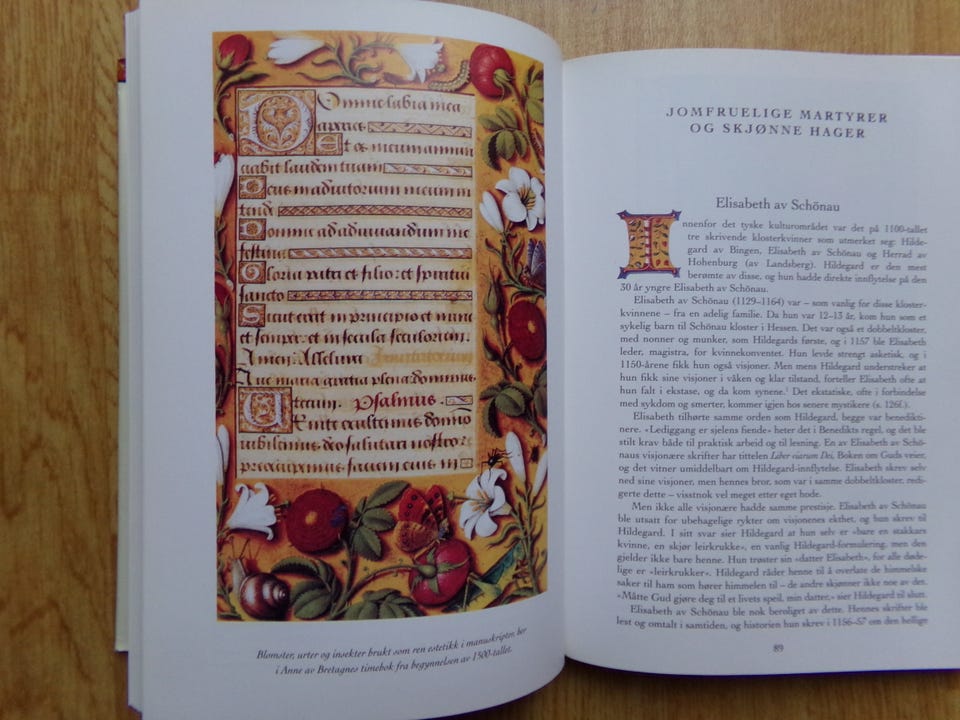 Domine labia mea
aperies
Et os meum annun
ciabit laudem tuam
Deus in adiutorium meum in
tende
Domine ad adiuuandum me
festina
Gloria patri et filio: et spiritui
sancto
Sicut erat in principio et nunc
et semper: et in secula seculorum.
Amen. Alleluia Inuitatorium
Aue maria gratia plena dominus
tecum. Psalmus.
Uenite exultemus domino
iubilemus deo salutari nostro
preoccupemus faciem eius in
Blomster, urter og insekter brukt som ren estetikk i manuskripter, her
i Anne av Bretagnes timebok fra begynnelsen av 1500-tallet.
JOMFRUELIGE MARTYRER
OG SKJØNNE HAGER
Elisabeth av Schönau
Innenfor det tyske kulturområdet var det på 1100-tallet
tre skrivende klosterkvinner som utmerket seg: Hilde-
gard av Bingen, Elisabeth av Schönau og Herrad av
Hohenburg (av Landsberg). Hildegard er den mest
berømte av disse, og hun hadde direkte innflytelse på den
30 år yngre Elisabeth av Schönau.
Elisabeth av Schönau (1129–1164) var – som vanlig for disse kloster-
kvinnene – fra en adelig familie. Da hun var 12–13 år, kom hun som et
sykelig barn til Schönau kloster i Hessen. Det var også et dobbeltkloster,
med nonner og munker, som Hildegards første, og i 1157 ble Elisabeth
leder, magistra, for kvinnekonventet. Hun levde strengt asketisk, og i
1150-årene fikk hun også visjoner. Men mens Hildegard understreker at
hun fikk sine visjoner i våken og klar tilstand, forteller Elisabeth ofte at
hun falt i ekstase, og da kom synene.¹ Det ekstatiske, ofte i forbindelse
med sykdom og smerter, kommer igjen hos senere mystikere (s. 126f.).
Elisabeth tilhørte samme orden som Hildegard, begge var benedikti-
nere. «Lediggang er sjelens fiende» heter det i Benedikts regel, og det ble
stilt krav både til praktisk arbeid og til lesning. En av Elisabeth av Schö-
naus visjonære skrifter har tittelen Liber viarum Dei, Boken om Guds veier,
og det vitner umiddelbart om Hildegard-innflytelse. Elisabeth skrev selv
ned sine visjoner, men hennes bror, som var i samme dobbeltkloster, redi-
gerte dette – visstnok vel meget etter eget hode.
Men ikke alle visjonære hadde samme prestisje. Elisabeth av Schönau
ble utsatt for ubehagelige rykter om visjonenes ekthet, og hun skrev til
Hildegard. I sitt svar sier Hildegard at hun selv er «bare en stakkars
kvinne, en skjør leirkrukke», en vanlig Hildegard-formulering, men den
gjelder ikke bare henne. Hun trøster sin «datter Elisabeth», for alle døde-
lige er «leirkrukker». Hildegard råder henne til å overlate de himmelske
saker til ham som hører himmelen til – de andre skjønner ikke noe av den.
«Måtte Gud gjøre deg til et livets speil, min datter,» sier Hildegard til slutt.
Elisabeth av Schönau ble nok beroliget av dette. Hennes skrifter ble
lest og omtalt i samtiden, og historien hun skrev i 1156–57 om den hellige
89